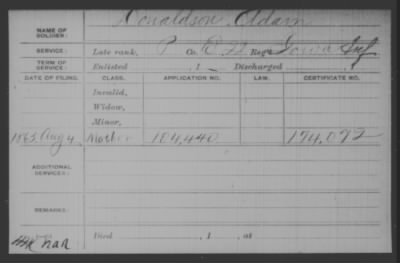 NAME OF SOLDIER: Donaldson, Adam
SERVICE: Late rank, P Co. D, Reg't Iowa Inf
TERM OF SERVICE: Enlisted , 1 Discharged , 1
DATE OF FILING. CLASS. APPLICATION NO. LAW. CERTIFICATE NO.
Invalid,
Widow,
Minor,
1865 Aug 4 Mother 184,440 174,092
ADDITIONAL SERVICES:
REMARKS:
Died , 1 , at